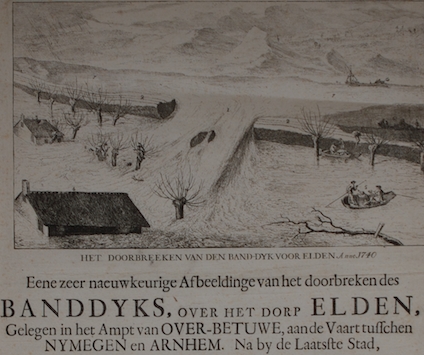 HET DOORBREEKEN VAN DEN BAND-DYK VOOR ELDEN Anno 1740
Eene zeer naeuwkeurige Afbeeldinge van het doorbreken des
BANDDYKS, OVER HET DORP ELDEN,
Gelegen in het Ampt van OVER-BETUWE, aan de Vaart tuſſchen
NYMEGEN en ARNHEM. Na by de Laatſte Stad,